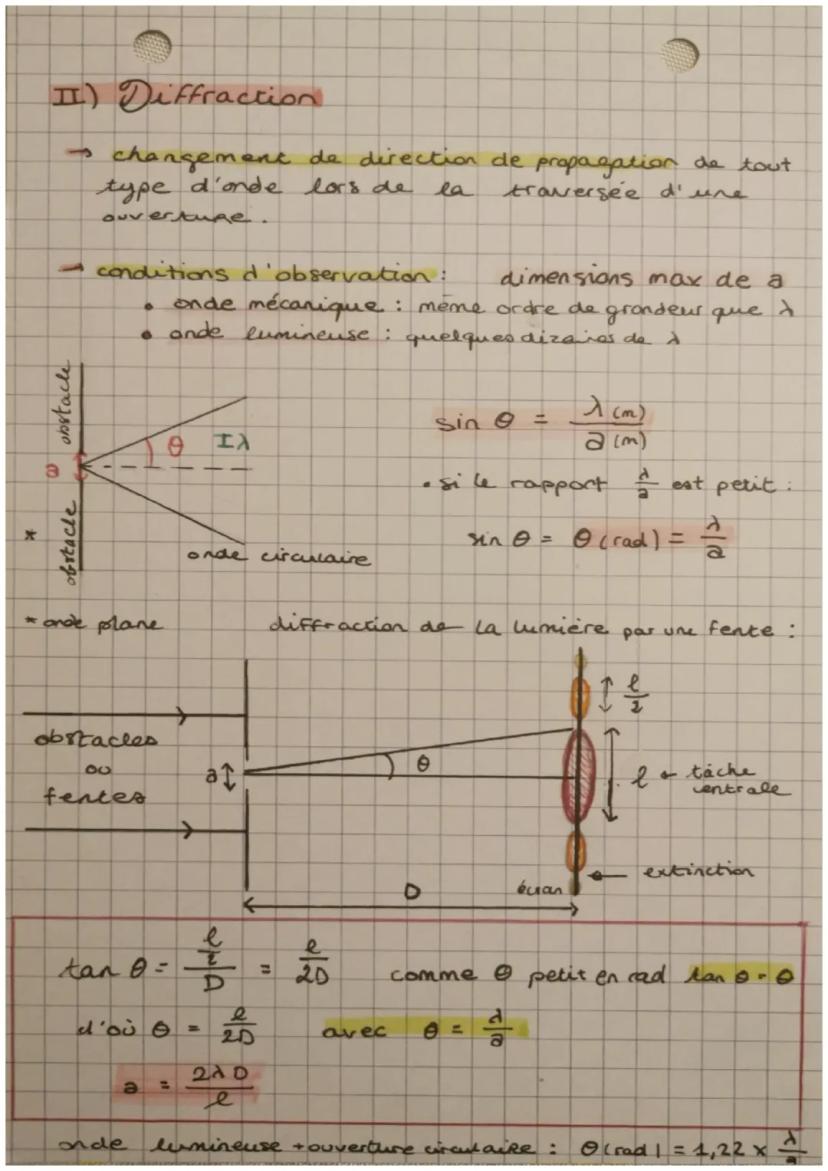 II) Diffraction
→ changement de direction de propagation de tout
type d'onde lors de la traversée d'une
ouverture.
→ conditions d'observation : dimensions max de a
• onde mécanique : même ordre de grandeur que λ
• onde lumineuse : quelques dizaines de λ
obstacle
a
θ
Iλ
obstacle
*
onde circulaire
sin θ = λ (m) / a (m)
• si le rapport λ/a est petit :
sin θ = θ (rad) = λ/a
* onde plane
diffraction de la lumière par une fente :
obstacles
ou
fentes
a
θ
l/2
l ← tâche
centrale
← extinction
écran
D
tan θ = (l/2)/D = l/2D comme θ petit en rad tan θ = θ
d'où θ = l/2D avec θ = λ/a
a = 2λD/l
onde lumineuse + ouverture circulaire : θ (rad) = 1,22 × λ/a